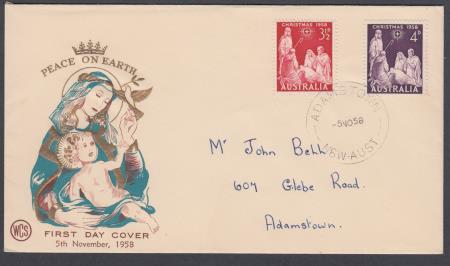 PEACE ON EARTH
WCS
FIRST DAY COVER
5th November, 1958
CHRISTMAS 1958
3½D
AUSTRALIA
CHRISTMAS 1958
4D
AUSTRALIA
ADAMSTOWN
-5NO58
N.S.W-AUST
Mr John Behh
607 Glebe Road.
Adamstown.